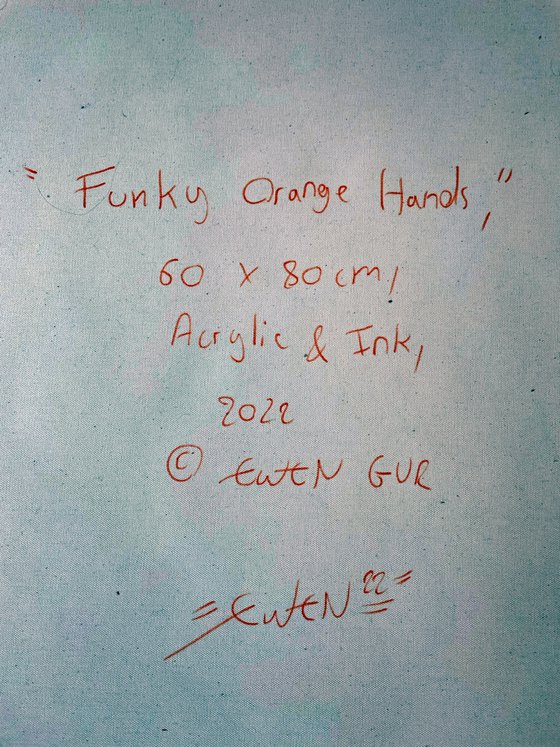 "Funky Orange Hands,"
60 x 80 cm,
Acrylic & Ink,
2022
© EWEN GUR
=EWEN 22=